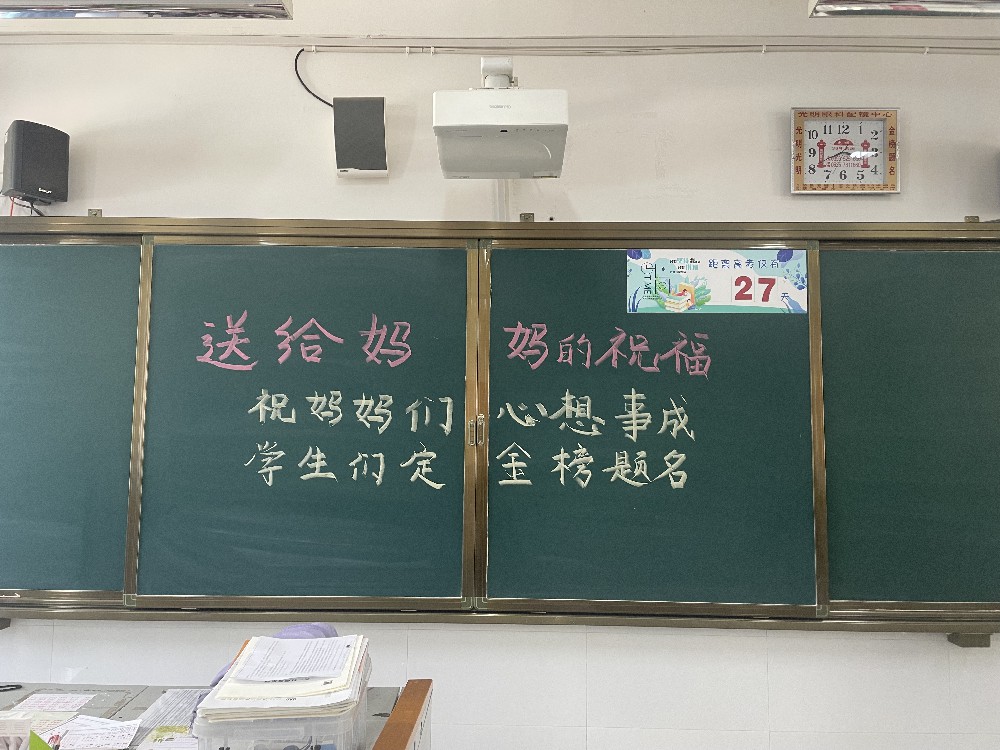 光明眼科配镜中心
光明光明
金榜题名
10 11 12 1 2
9 3
8 7 6 5 4
距离高考仅有
TIME
27天
送给妈妈的祝福
祝妈妈们心想事成
学生们定金榜题名